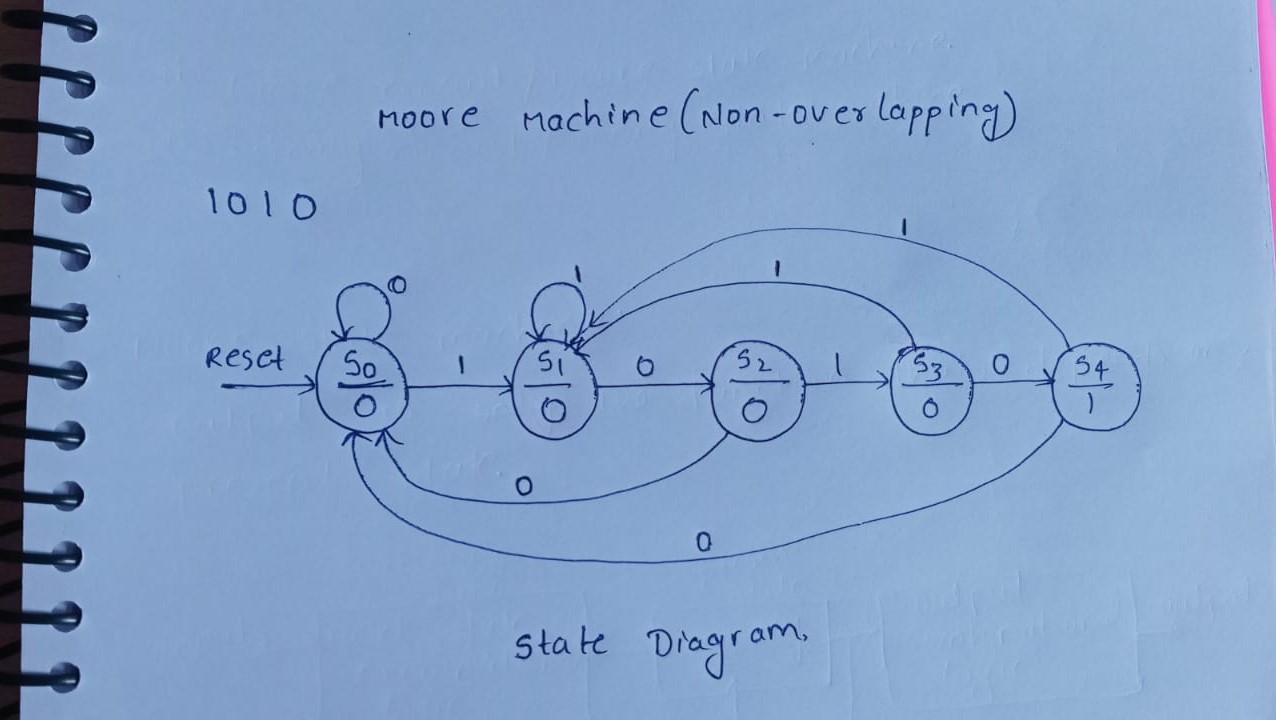 Moore Machine (Non-overlapping)
1010
1
1
0 1
Reset S0 1 S1 0 S2 1 S3 0 S4
0 0 0 0 1
0
0
State Diagram.